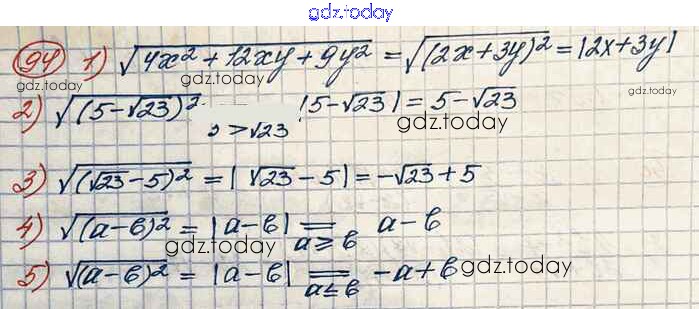 gdz.today
94 1) √(4x² + 12xy + 9y²) = √((2x+3y)²) = |2x+3y|
gdz.today gdz.today
2) √((5-√23)²) |5-√23| = 5-√23
>√23 gdz.today
3) √((√23-5)²) = |√23-5| = -√23+5
4) √((a-b)²) = |a-b| = a-b
gdz.today a⩾b
5) √((a-b)²) = |a-b| = -a+b gdz.today
a≤b